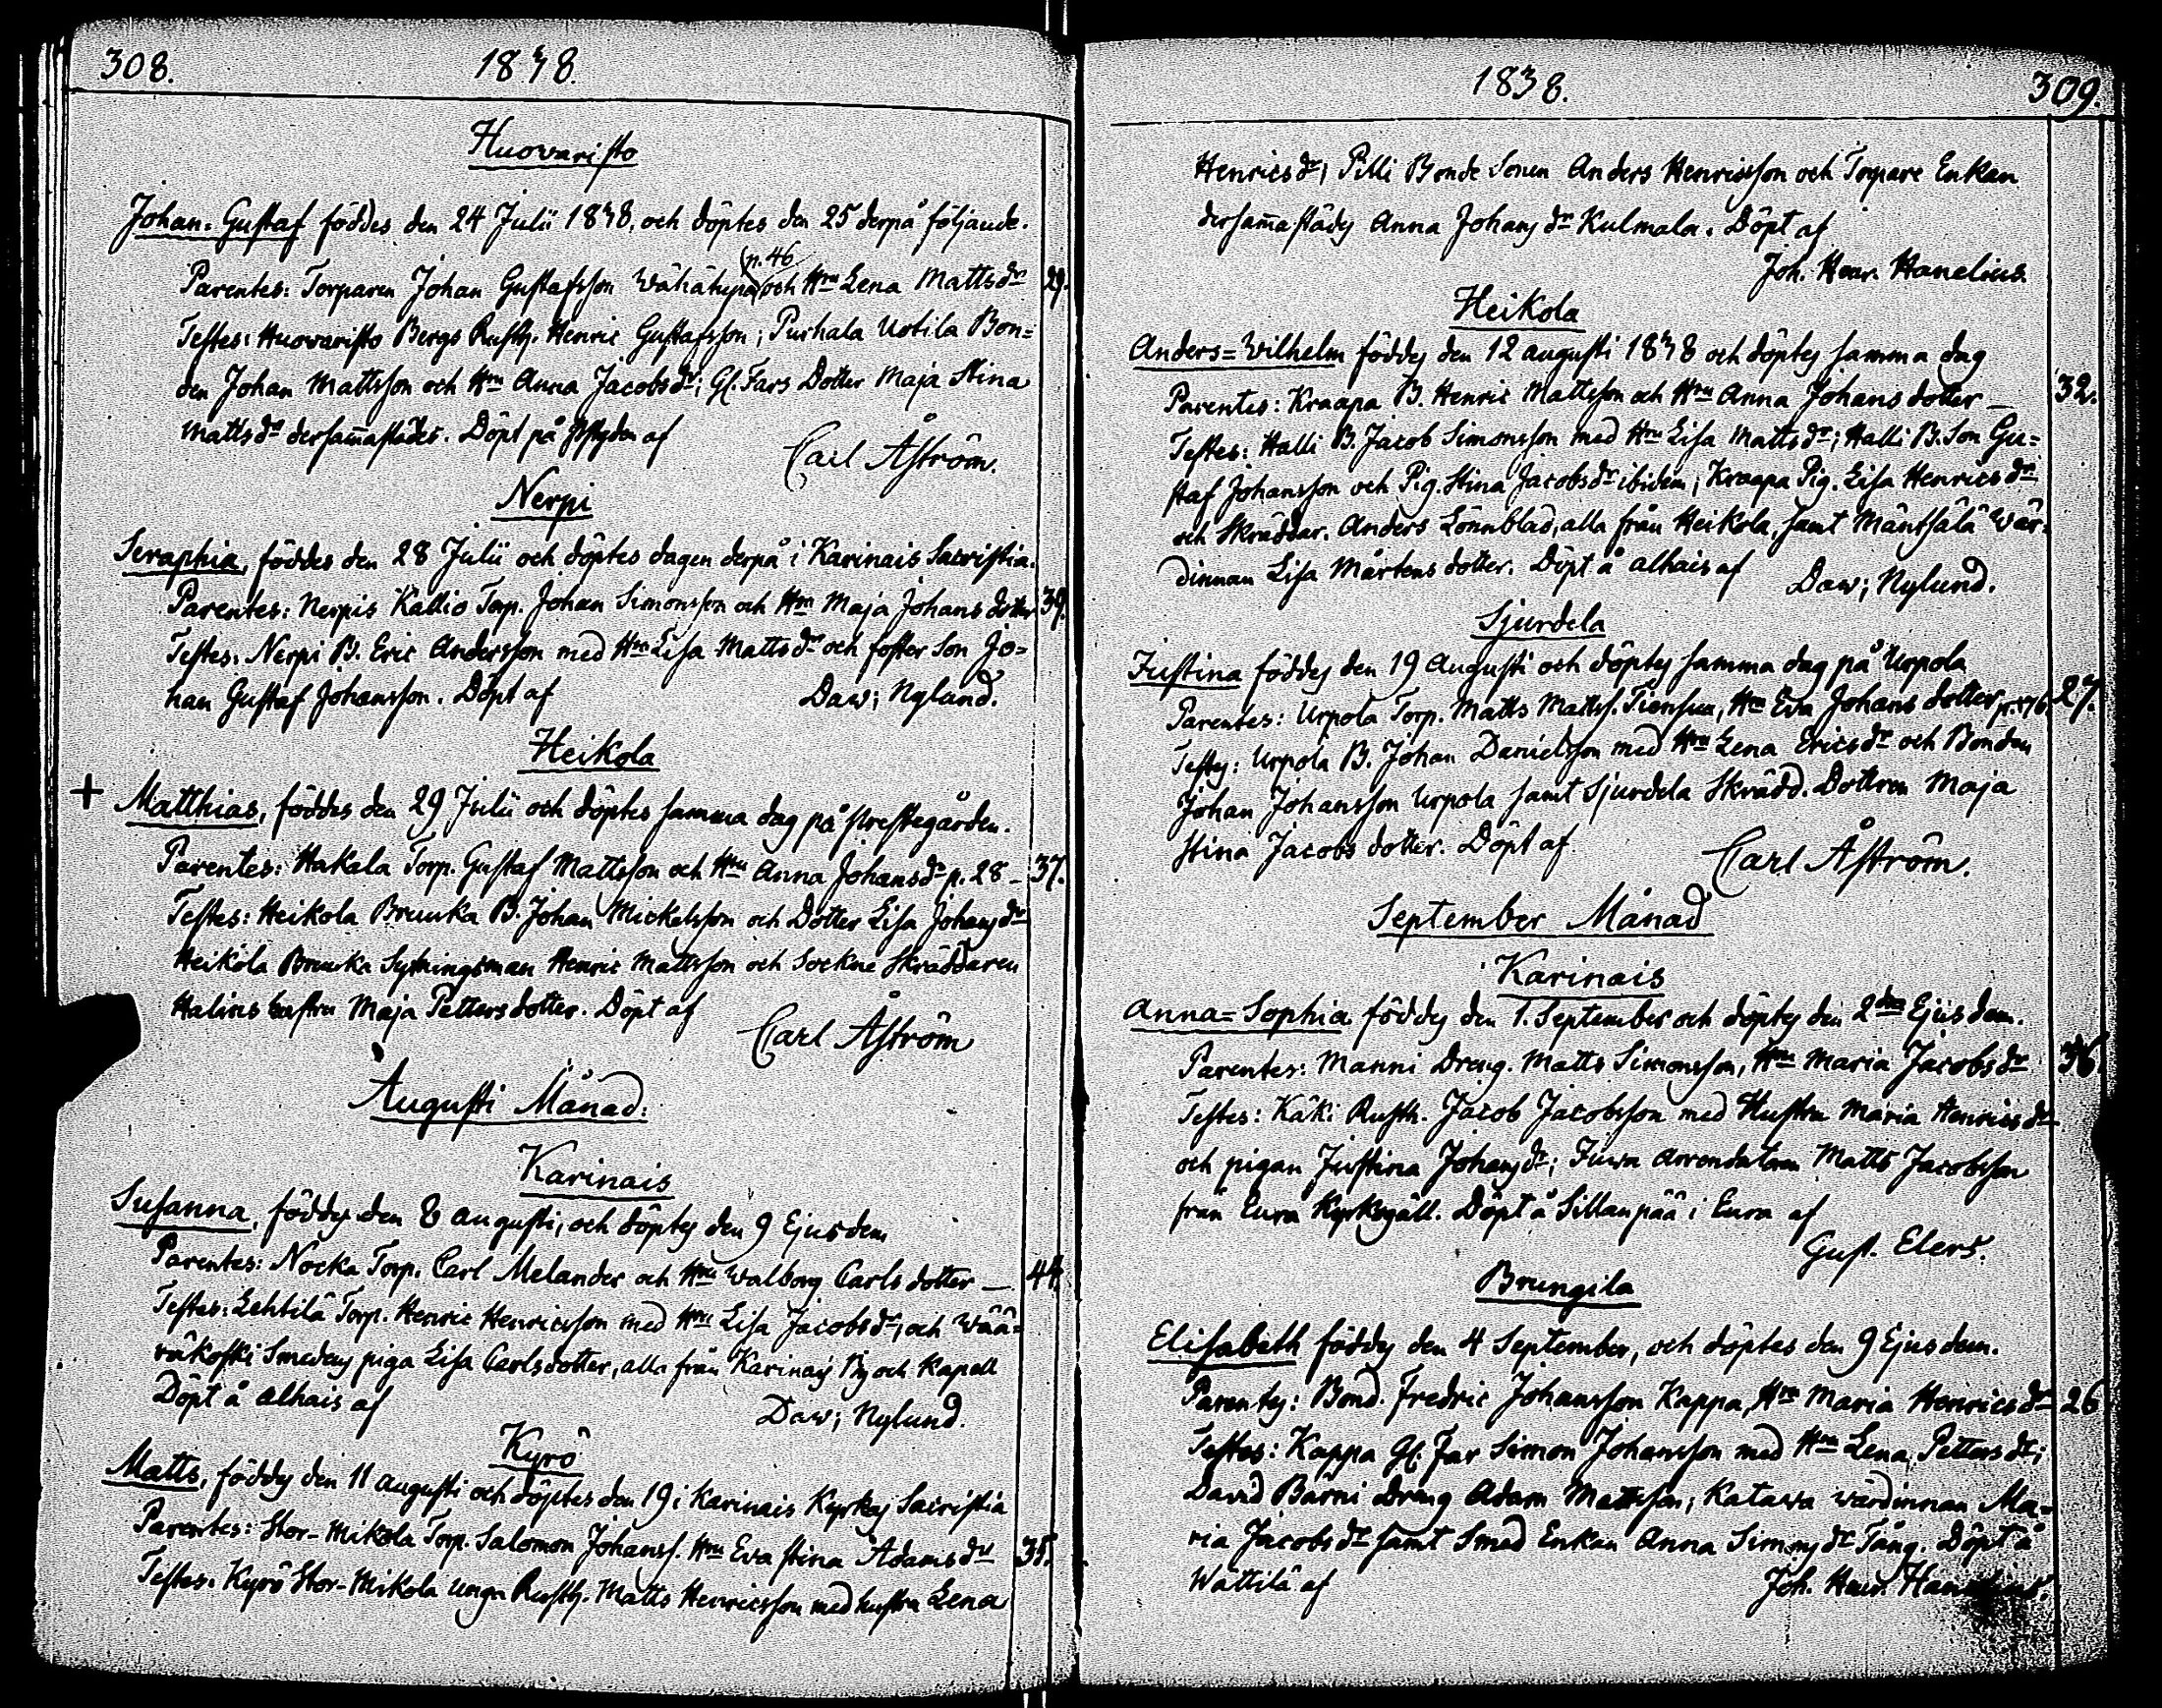 308.
1838.
Huovaristo
Johan-Gustaf föddes den 24 Julii 1838, och döptes den 25 derpå följande.
(p. 46
Parentes: Torparen Johan Gustafsson Wähähypä och Hru Lena Mattsdr 29.
Testes: Huovaristo Bergs Rusth. Henric Gustafsson; Purhala Uotila Bon=
den Johan Mattsson och Hru Anna Jacobsdr; Gl. Fars Dotter Maja Stina
Mattsdr dersam̄astädes. Döpt på af
Carl Åström.
Nerpi
Seraphia, föddes den 28 Julii och döptes dagen derpå i Karinais Sacristia.
Parentes: Nerpis Kallio Torp. Johan Simonsson och Hru Maja Johans dotter 39.
Testes. Nerpi B. Eric Andersson med Hru Lisa Mattsdr och foster Son Jo=
han Gustaf Johansson. Döpt af Daw; Nylund.
Heikola
+ Matthias, föddes den 29 Julii och döptes samma dag på Prestegården.
Parentes: Hakala Torp. Gustaf Mattsson och Hru Anna Johansdr p. 28 – 37.
Testes: Heikola Bruuka B. Johan Mickelsson och Dotter Lisa Johansdr
Heikola Bruuka Sytningsman Henric Mattsson och Sockne Skräddaren
Halins hustru Maja Petters dotter. Döpt af
Carl Åström
Augusti Månad:
Karinais
Susanna, föddes den 8 augusti, och döptes den 9 Ejusdem
Parentes: Nocka Torp. Carl Melander och Hru Walborg Carls dotter — 44.
Testes: Lehtilä Torp. Henric Henricsson med Hru Lisa Jacobsdr, och Wää=
räkoski Smedens piga Lisa Carlsdotter, alla från Karinais By och Kapell
Döpt å alhais af Daw; Nylund.
Kyrö
Matts, föddes den 11 augusti och döptes den 19 i Karinais Kyrkas Sacristia
Parentes: Stor-Mikola Torp. Salomon Johanss. Hru Eva Stina Adamsdr 35.
Testes. Kyrö Stor-Mikola unga Rusth. Matts Henricsson med hustru Lena
1838.
309.
Henricsdr; Pilli Bonde Sonen Anders Henricsson och Torpare Enkan
dersam̄astädes Anna Johansdr Kulmala. Döpt af
Joh. Henr. Hanelius.
Heikola
Anders=Wilhelm föddes den 12 augusti 1838 och döptes samma dag
Parentes: Kraapa B. Henric Mattsson och Hru Anna Johans dotter — 32.
Testes: Halli B. Jacob Simonsson med Hru Lisa Mattsdr; Halli B. Son Gu=
staf Johansson och Pig. Stina Jacobsdr ibidem; Kraapa Pig. Lisa Henricsdr
och Skräddar. Anders Lönnblad, alla från Heikola, samt Mäntsälä Wär=
dinnan Lisa Mårtens dotter. Döpt å alhais af
Daw; Nylund.
Sjurdela
Justina föddes den 19 Augusti och döptes samma dag på Urpola
Parentes: Urpola Torp. Matts Mattss. Tiensuu, Hru Eva Johans dotter 27.
Testes: Urpola B. Johan Danielsson med Hru Lena Ericsdr och Bonden
Johan Johansson Urpola samt Sjurdela Skrädd. Dottren Maja
Stina Jacobs dotter. Döpt af
Carl Åström.
September Månad
Karinais
Anna=Sophia föddes den 1. September och döptes den 2dra Ejusdem.
Parentes: Manni Dreng. Matts Simonsson, Hru Maria Jacobsdr 36
Testes: Käki Rusth. Jacob Jacobsson med Hustru Maria Henricsdr
och pigan Justina Johansdr; Juva Arrendatoren Matts Jacobsson
från Eura Kyrkogäll. Döpt å Sillanpää i Eura af
Gust. Elers.
Brungila
Elisabeth föddes den 4 September, och döptes den 9 Ejusdem.
Parentes: Bond. Fredric Johansson Kappa, Hru Maria Henricsdr 26
Testes: Kappa Gl. Far Simon Johansson med Hru Lena Pettersdr;
David Bärni Dreng Adam Mattsson; Katawa wärdinnan Ma=
ria Jacobsdr samt Smed Enkan Anna Simonsdr Tång. Döpt å
Wättilä af
Joh. Henr. Hanelius.